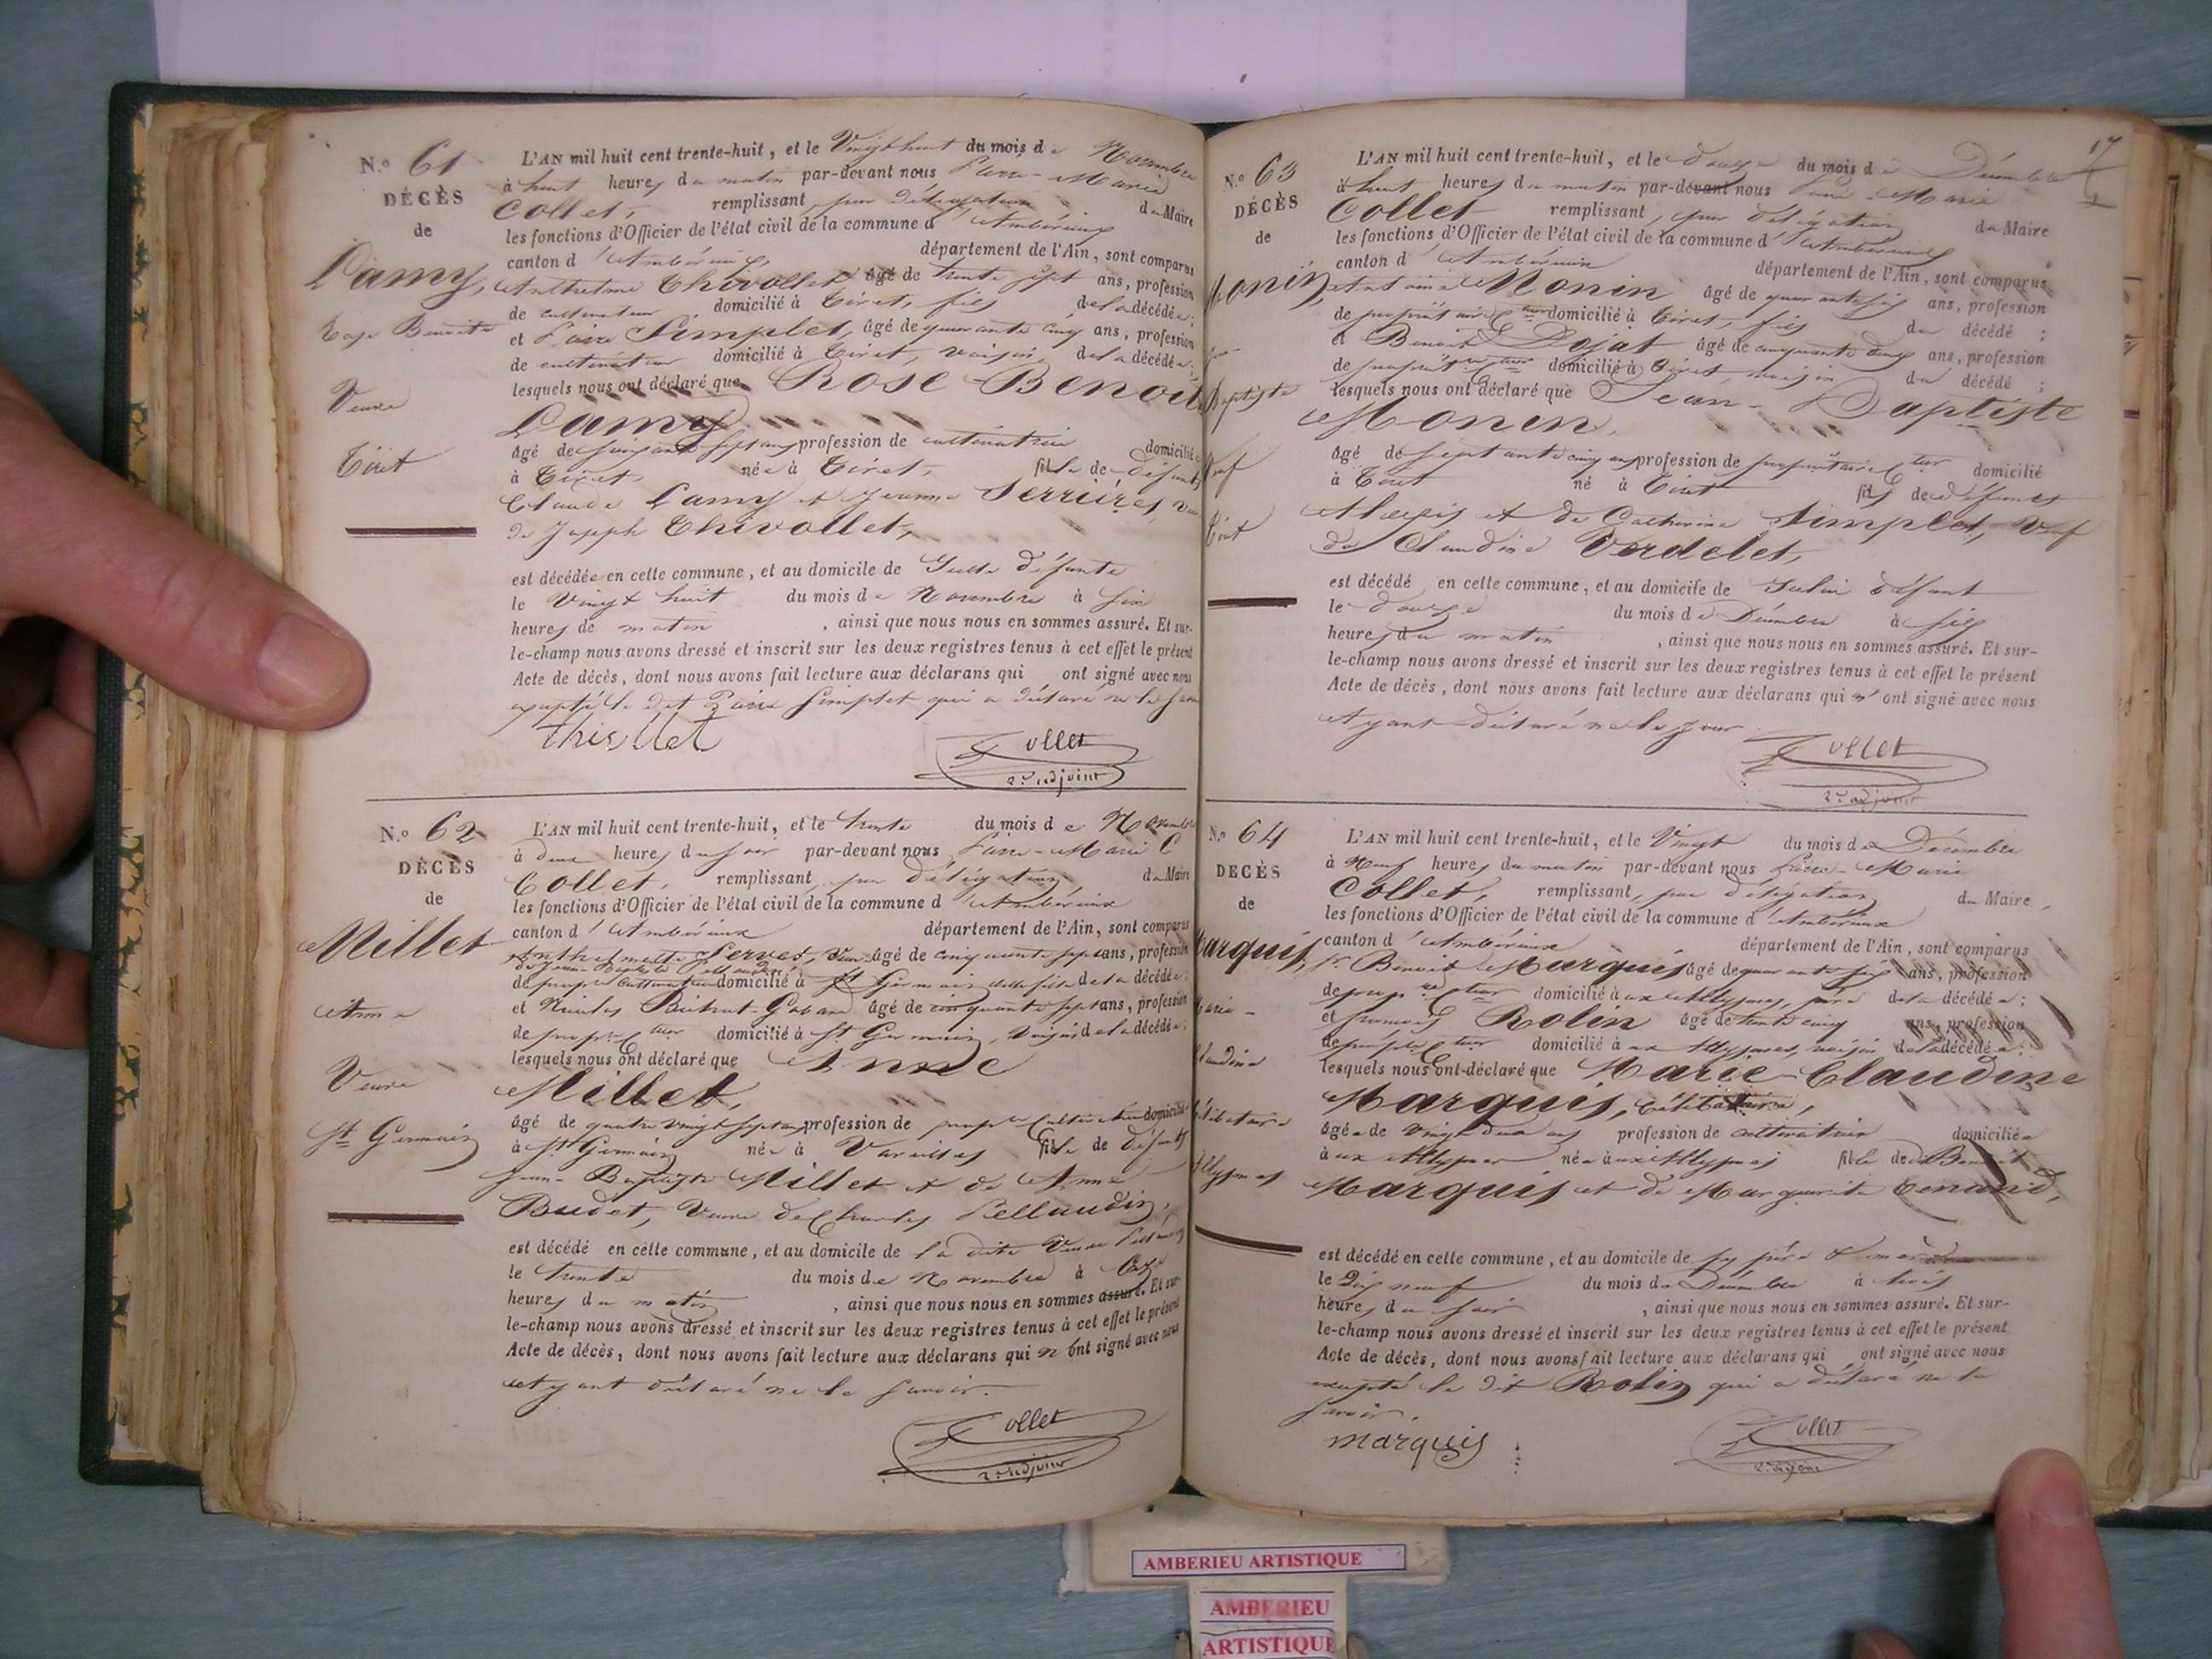 N.º 61
DÉCÈS
de
Lamy,
Rose Benoite
Veuve
Tiret
L'AN mil huit cent trente-huit, et le Vingt huit du mois de Novembre
à huit heures du matin par-devant nous Pierre-Marie
Collet, remplissant, par délégation du Maire
les fonctions d'Officier de l'état civil de la commune d'Ambérieux
canton d'Ambérieux, département de l'Ain, sont comparus
Anthelme Thivollet âgé de trente sept ans, profession
de cultivateur domicilié à Tiret, fils de la décédée;
et Pierre Simplet, âgé de quarante cinq ans, profession
de cultivateur domicilié à Tiret, voisin de la décédée;
lesquels nous ont déclaré que Rose Benoite
Lamy
âgé de soixante sept ans profession de cultivatrice domicilié
à Tiret, née à Tiret, fille de défunts
Claude Lamy et Jeanne Serrières, veuve
de Joseph Thivollet,
est décédée en cette commune, et au domicile de Icelle défunte
le Vingt huit du mois de Novembre à six
heures de matin, ainsi que nous nous en sommes assuré. Et sur-
le-champ nous avons dressé et inscrit sur les deux registres tenus à cet effet le présent
Acte de décès, dont nous avons fait lecture aux déclarans qui ont signé avec nous
excepté le dit Pierre Simplet qui a déclaré ne le savoir
thivollet Collet
2e adjoint
N.º 62
DÉCÈS
de
Millet
Anne
Veuve
St Germain
L'AN mil huit cent trente-huit, et le trente du mois de Novembre
à deux heures du soir par-devant nous Pierre-Marie C
Collet, remplissant par délégation du Maire
les fonctions d'Officier de l'état civil de la commune d'Ambérieux
canton d'Ambérieux département de l'Ain, sont comparus
Anthelmette Servet, veuve âgé de cinquante sept ans, profession
de Jean-Baptiste Pellaudin
de propre cultivatrice domicilié à St Germain belle fille de la décédée
et Nicolas âgé de cinquante sept ans, profession
de propre Cteur domicilié à St Germain, voisin de la décédée;
lesquels nous ont déclaré que Anne
Millet,
âgé de quatre vingt sept ans profession de propre cultivatrice domicilié
à St Germain née à Vareilles fille de défunts
Jean-Baptiste Millet et de Anne
Budet, Veuve de Charles Pellaudin,
est décédé en cette commune, et au domicile de la dite Veuve Pellaudin
le trente du mois de Novembre à Onze
heures du matin, ainsi que nous nous en sommes assuré. Et sur-
le-champ nous avons dressé et inscrit sur les deux registres tenus à cet effet le présent
Acte de décès, dont nous avons fait lecture aux déclarans qui n'ont signé avec nous
ayant déclaré ne le savoir.
Collet
2e adjoint
17
N.º 63
DÉCÈS
de
Monin,
Jean
Baptiste
Veuf
Tiret
L'AN mil huit cent trente-huit, et le douze du mois de Décembre
à huit heures du matin par-devant nous Pierre-Marie
Collet remplissant, par délégation du Maire
les fonctions d'Officier de l'état civil de la commune d'Ambérieux
canton d'Ambérieux département de l'Ain, sont comparus
Antoine Monin âgé de quarante six ans, profession
de propriétaire Cteur domicilié à Tiret, fils du décédé;
et Benoit Dojat âgé de cinquante deux ans, profession
de propriétre Cteur domicilié à Tiret, voisin du décédé;
lesquels nous ont déclaré que Jean-Baptiste
Monin,
âgé de septante cinq ans profession de propriétaire Cteur domicilié
à Tiret né à Tiret fils de défunts
Alexis et de Catherine Simplet, Veuf
de Claudine Verdelet,
est décédé en cette commune, et au domicile de Icelui défunt
le douze du mois de Décembre à six
heures du matin, ainsi que nous nous en sommes assuré. Et sur-
le-champ nous avons dressé et inscrit sur les deux registres tenus à cet effet le présent
Acte de décès, dont nous avons fait lecture aux déclarans qui n'ont signé avec nous
Ayant déclaré ne le savoir
Collet
2e adjoint
N.º 64
DÉCÈS
de
Marquis,
Marie-
Claudine
Célibataire
Allymes
L'AN mil huit cent trente-huit, et le Vingt du mois de Décembre
à Neuf heures du matin par-devant nous Pierre-Marie
Collet, remplissant, par délégation du Maire
les fonctions d'Officier de l'état civil de la commune d'Ambérieux
canton d'Ambérieux département de l'Ain, sont comparus
Sr Benoit Marquis âgé de quarante six ans, profession
de propre Cteur domicilié aux Allymes, père de la décédée;
et François Rolin âgé de trente cinq ans, profession
de propre Cteur domicilié à aux Allymes, voisin de la décédée;
lesquels nous ont déclaré que Marie-Claudine
Marquis, célibataire,
âgée de vingt deux ans profession de cultivatrice domiciliée
aux Allymes née aux Allymes fille de Benoit
Marquis et de Marguerite Tenand,
est décédé en cette commune, et au domicile de ses père & mère
le Dix neuf du mois de Décembre à trois
heures du soir, ainsi que nous nous en sommes assuré. Et sur-
le-champ nous avons dressé et inscrit sur les deux registres tenus à cet effet le présent
Acte de décès, dont nous avons fait lecture aux déclarans qui ont signé avec nous
excepté le dit Rolin qui a déclaré ne le
savoir.
marquis Collet
2e adjoint
AMBERIEU ARTISTIQUE
AMBERIEU
ARTISTIQUE